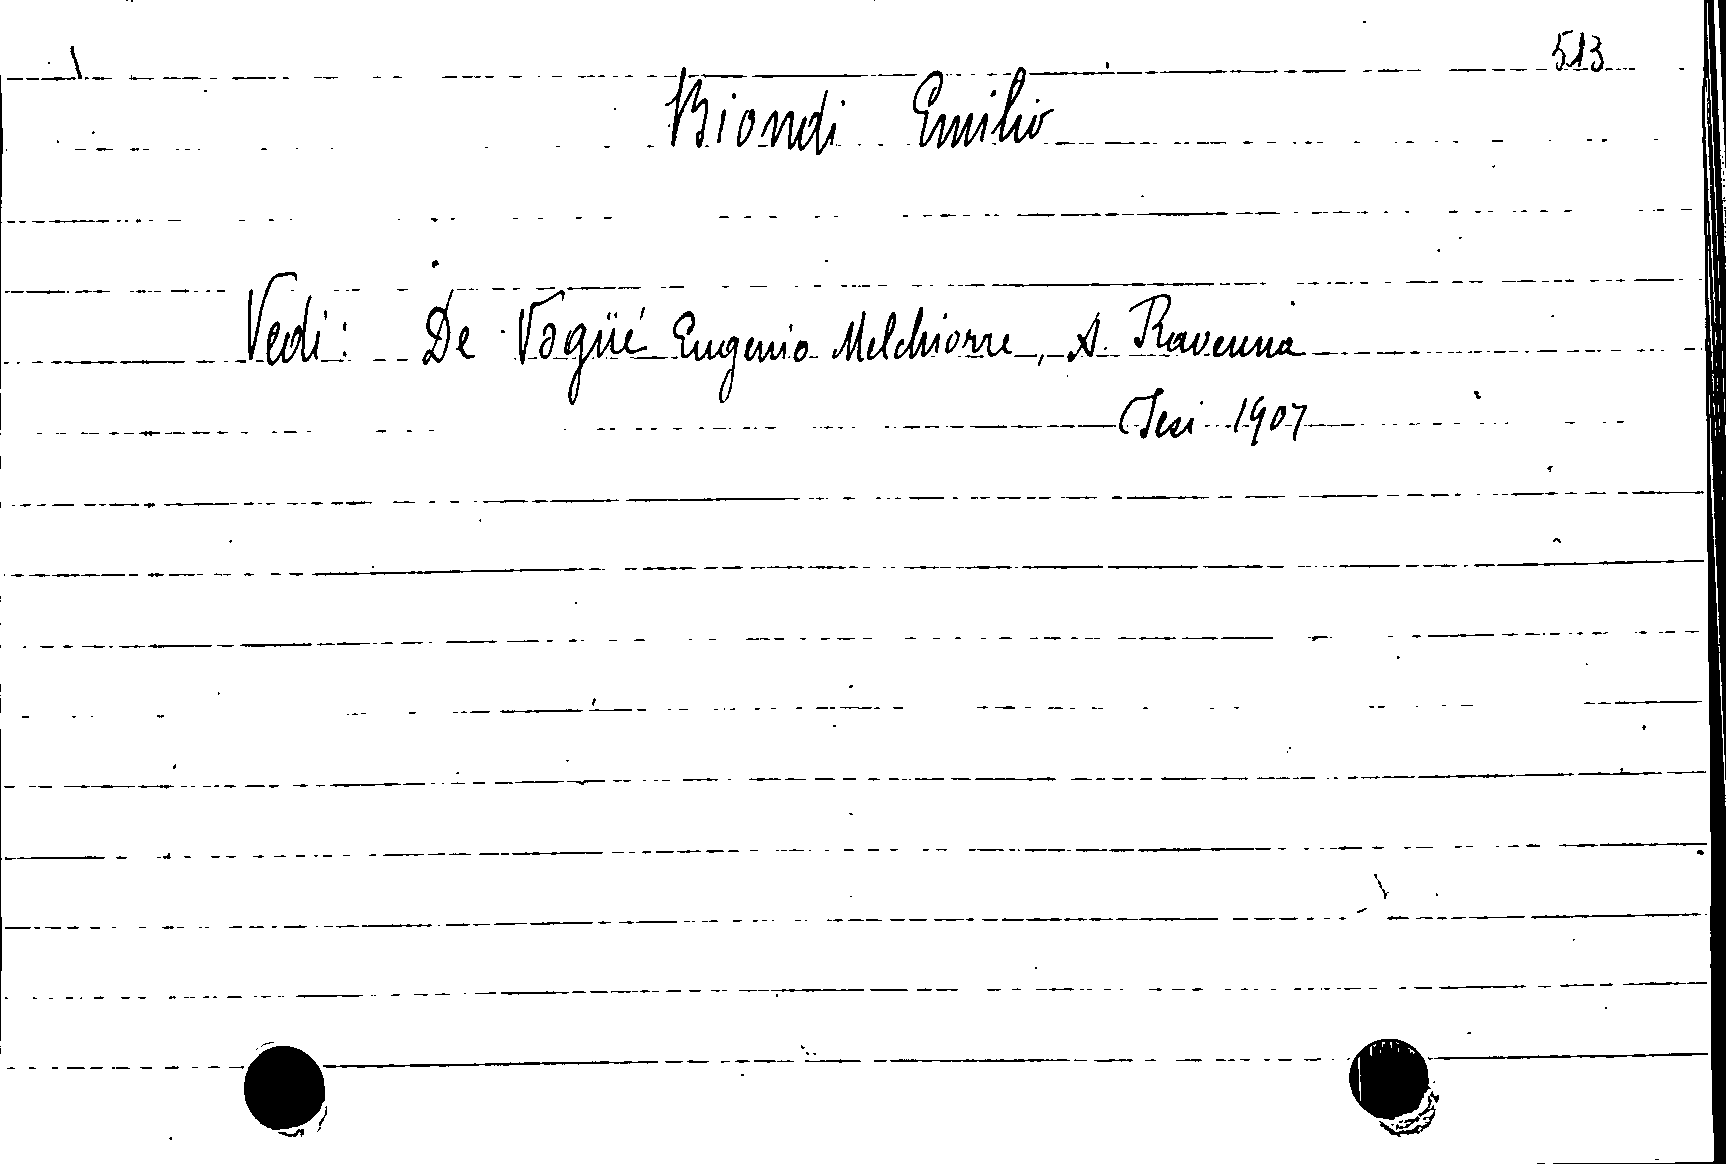 513
Biondi Emilio
Vedi: De Vogüé Eugenio Melchiorre, A Ravenna
Jesi 1907